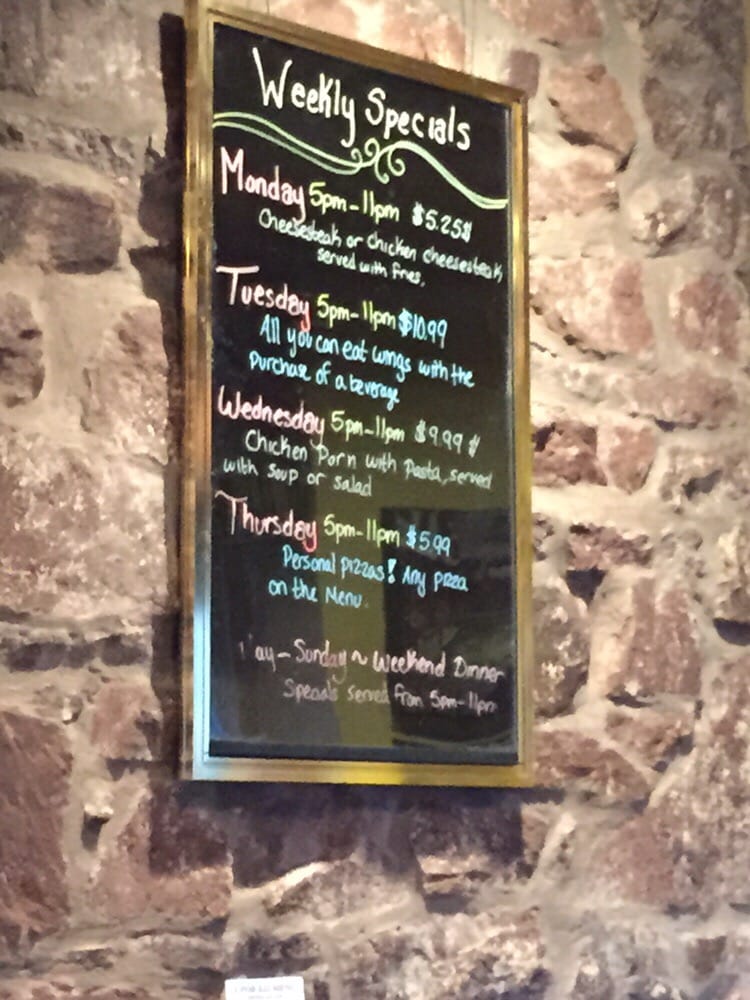 Weekly Specials
Monday 5pm-11pm $5.25$
Cheesesteak or chicken cheesesteak
served with fries,
Tuesday 5pm-11pm $10.99
All you can eat wings with the
purchase of a beverage
Wednesday 5pm-11pm $9.99 $
Chicken Parm with Pasta, served
with soup or salad
Thursday 5pm-11pm $5.99
Personal pizzas! Any pizza
on the Menu.
ay - Sunday ~ Weekend Dinner
Specials served from 5pm-11pm